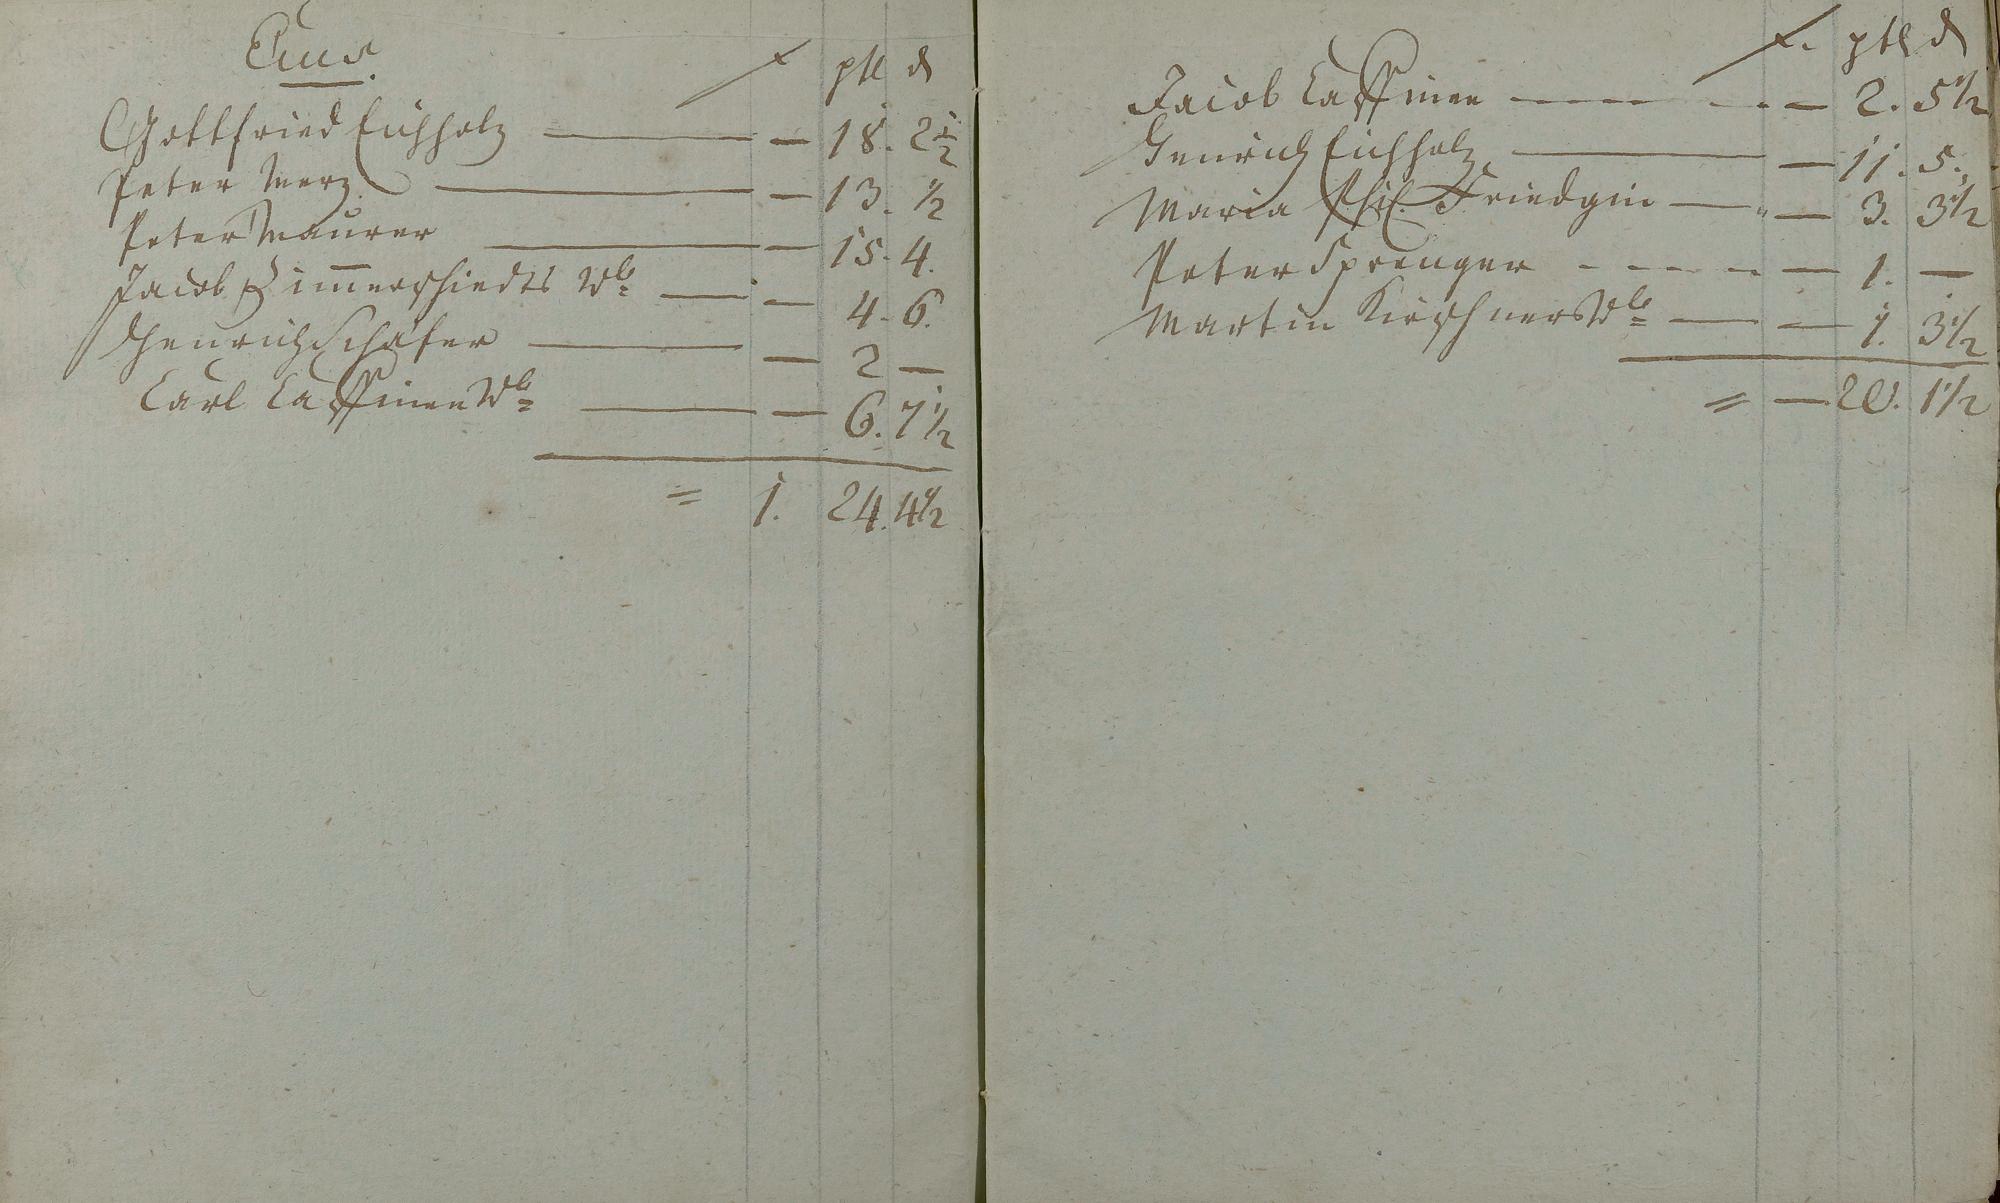 Ems.
x ptl d
Gottfried Eichholz — — 18. 2 1/2
Peter Merz — — 13. 1/2
Peter Maurer — — 15. 4.
Jacob Zimerschiedts Wb — — 4. 6.
Henrich Schäfer — — 2 —
Carl Caffinen Wb — — 6. 7 1/2
= 1. 24. 4 1/2
x. ptl d
Jacob Caffinee — — 2. 5 1/2
Henrich Eichholz — — 11. 5.
Maria Phil. Friedgin — — 3. 3 1/2
Peter Sprenger — — 1. —
Martin Kirschners Wb — — 1. 3 1/2
= — 20. 1 1/2